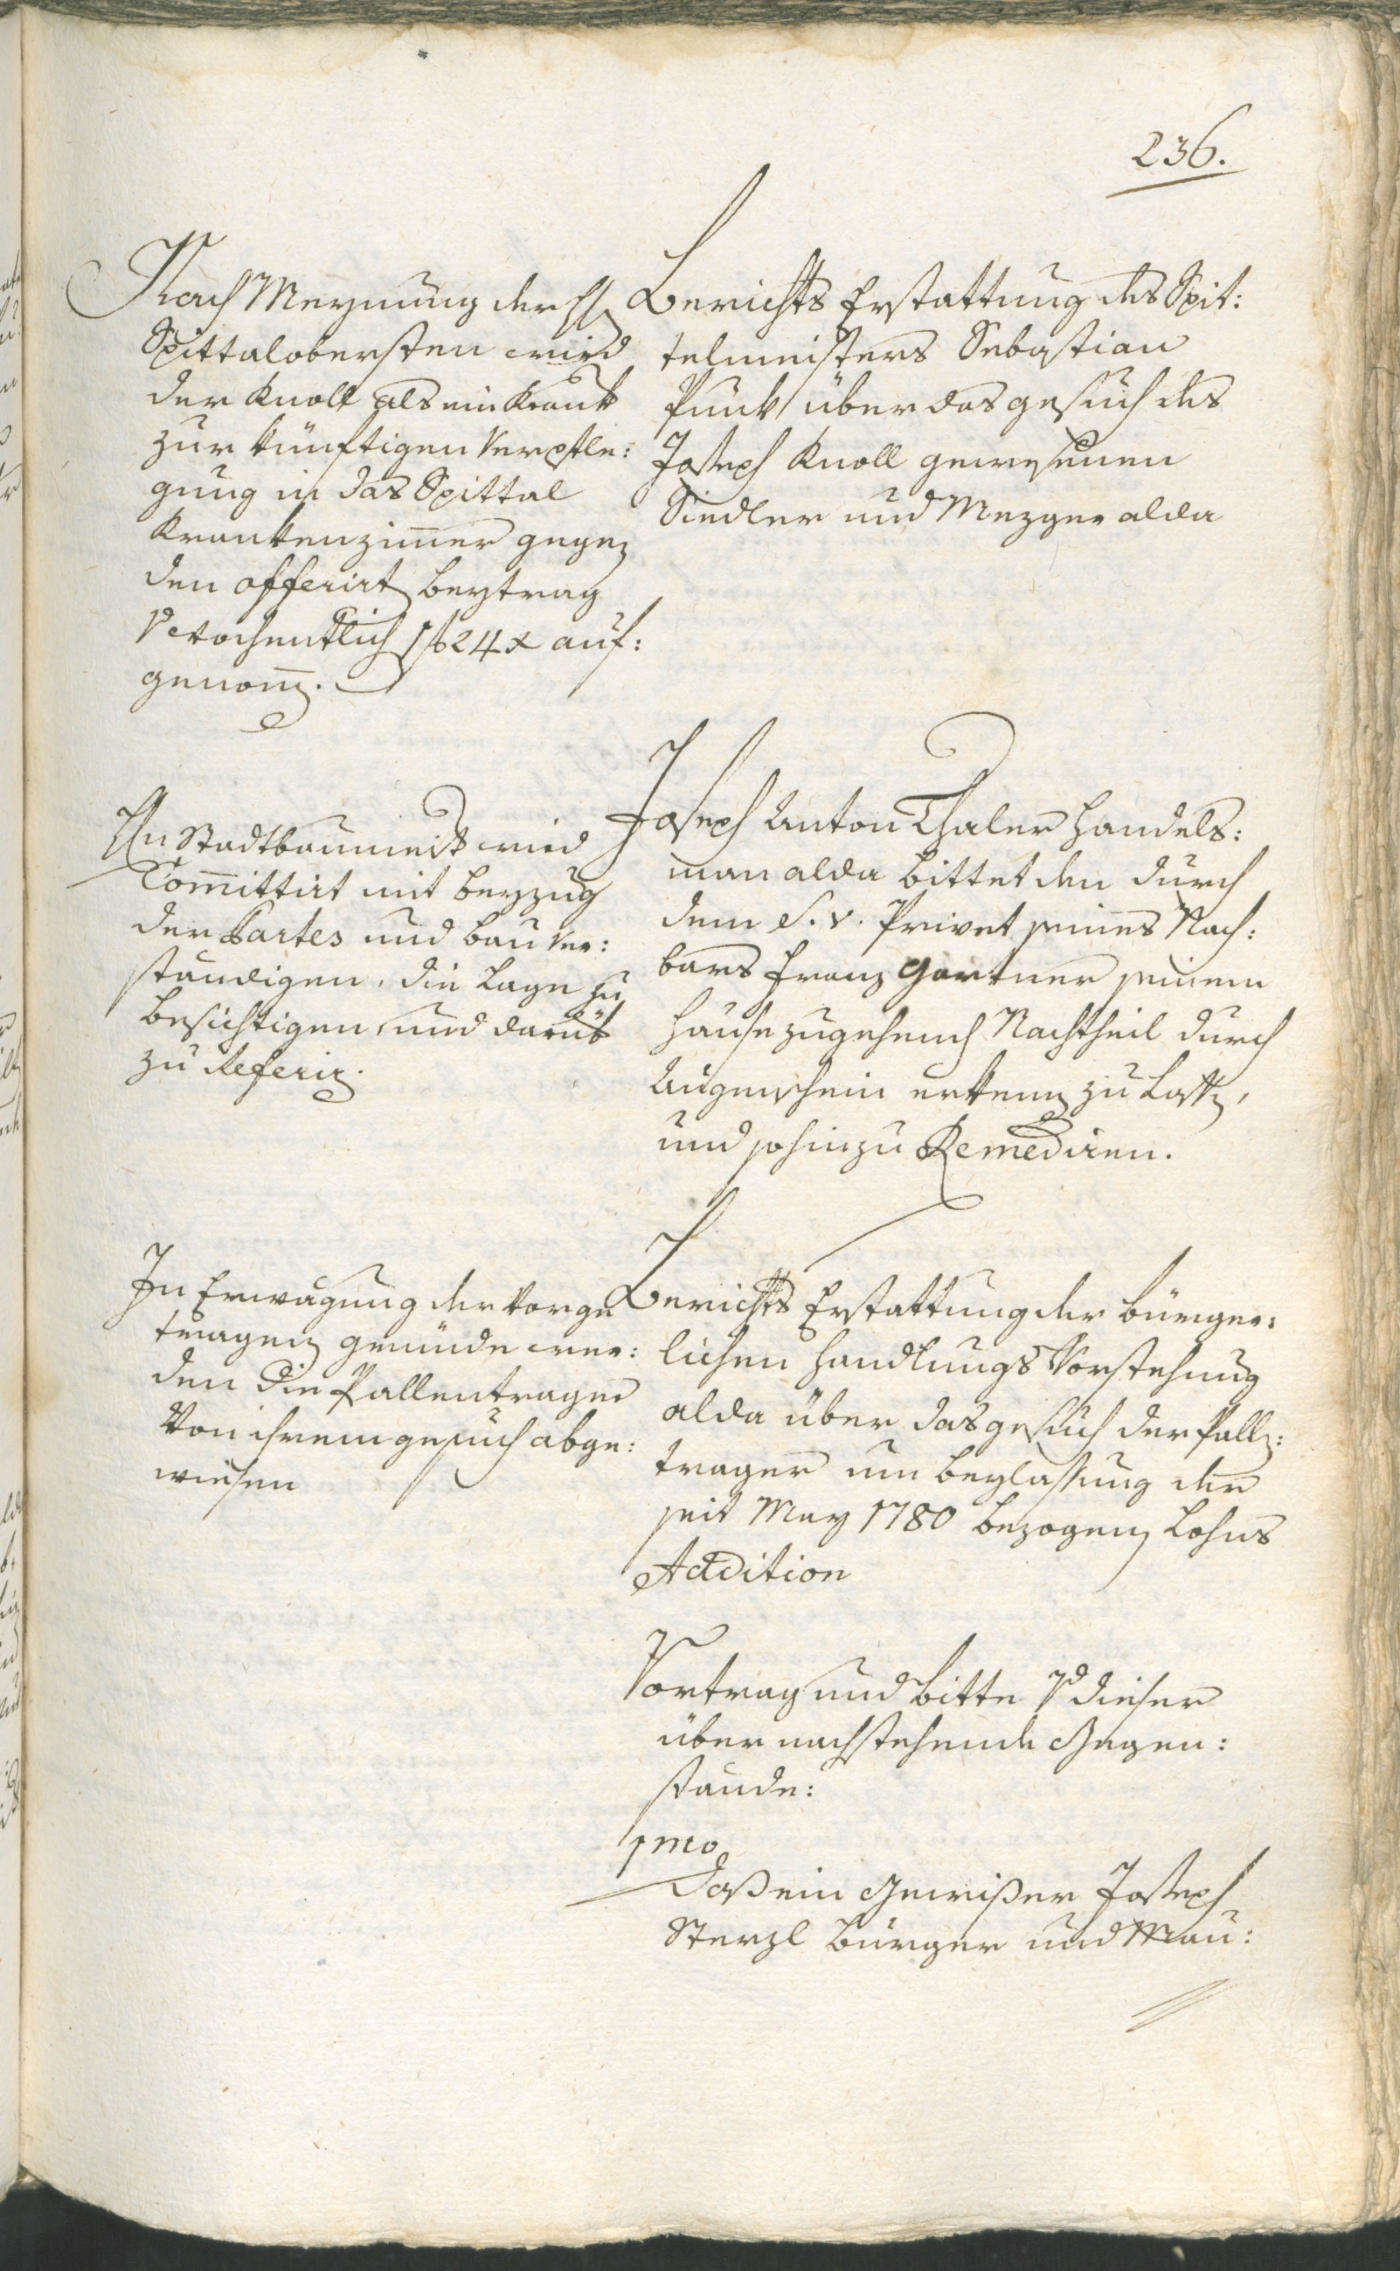 236.
Nach Meynung der HH
Spittalobersten wird
der Knoll als ein Krank
zur künftigen Verpfle:
gung in das Spittal
Krankenzimer gegen
den offerirt beytrag
Wochentlich 1 f 24 x auf:
genom.
Berichts Erstattung des Spit:
telmeisters Sebastian
Punk über das gesuch des
Joseph Knoll gewesenen
Siedler und Mezger alda
Hn Stadtbaumeist wird
Comittirt mit beyzug
der Partes und bau ver:
ständigen, die Lage zu
besichtigen, und darüb
zu Referir.
Joseph Anton Thaler Handels:
man alda bittet den durch
dem S. v. Privet seines Nach:
bars Franz Gartner seinem
Hause zugehend Nachtheil durch
Augenschein erkenn zu Lassen,
und sohin zu Remediren.
In Erwägung der vorge
tragen gründe wer:
den die Pallentrager
von ihrem gesuch abge:
wiesen
Berichts Erstattung der bürger:
lichen Handlungs Vorstehung
alda über das gesuch der Palln:
trager um beylassung der
seit May 1780 bezogenen Lohns
Addition
Vortrag und bitte dieser
über nachstehende Gegen:
stände:
1mo
Daß ein Gewißer Joseph
Sterzl Bürger und Mau: